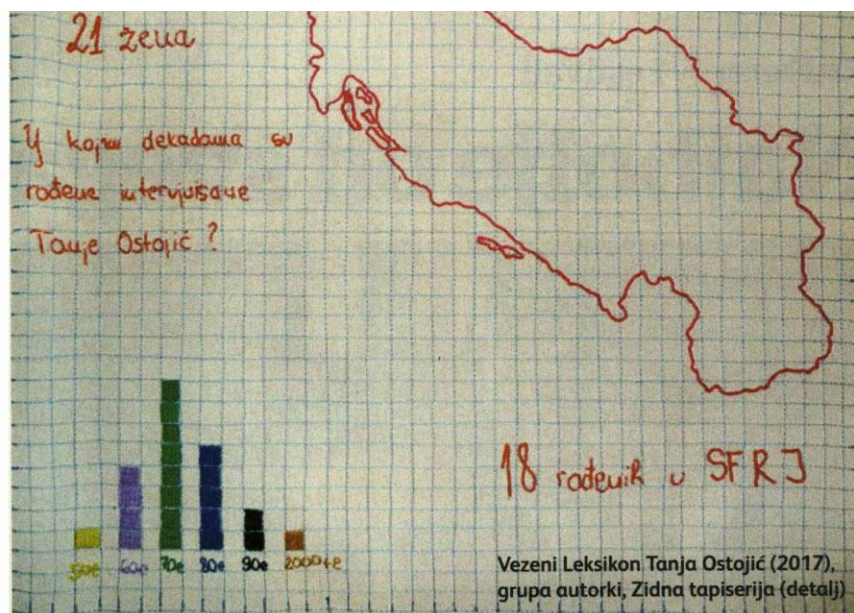 21 žena
U kojim dekadama su
rođene intervjuisane
Tanje Ostojić?
50e 60e 70e 80e 90e 2000+e
18 rođenih u SFRJ
Vezeni Leksikon Tanja Ostojić (2017),
grupa autorki, Zidna tapiserija (detalj)